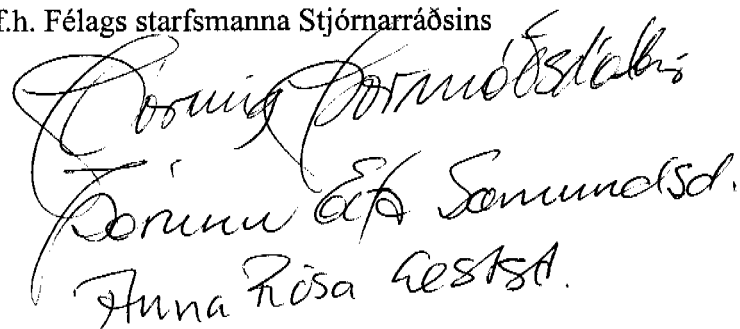 f.h. Félags starfsmanna Stjórnarráðsins
Þórunn Þormóðsdóttir
Þórunn Sæmundsd.
Anna Rósa Gestsd.